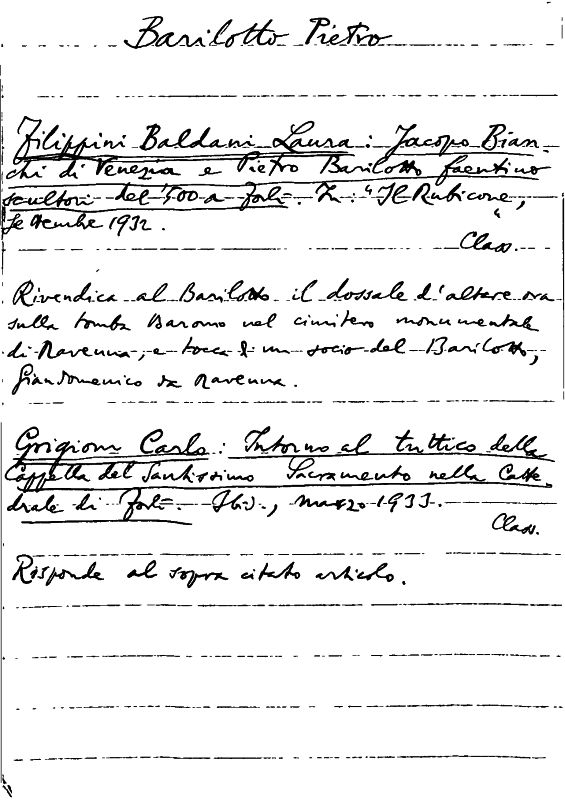 Barilotto Pietro
Filippini Baldani Laura: Jacopo Bian-
chi di Venezia e Pietro Barilotto faentino
scultori del '500 a Forlì. In: "Il Rubicone",
Settembre 1932.
Class.
Rivendica al Barilotto il dossale d'altare ora
sulla tomba Baromo nel cimitero monumentale
di Ravenna, e tocca di un socio del Barilotto,
Giandomenico da Ravenna.
Grigioni Carlo: Intorno al trittico della
Cappella del Santissimo Sacramento nella Catte-
drale di Forlì. Ibid., marzo 1933.
Class.
Risponde al sopra citato articolo.